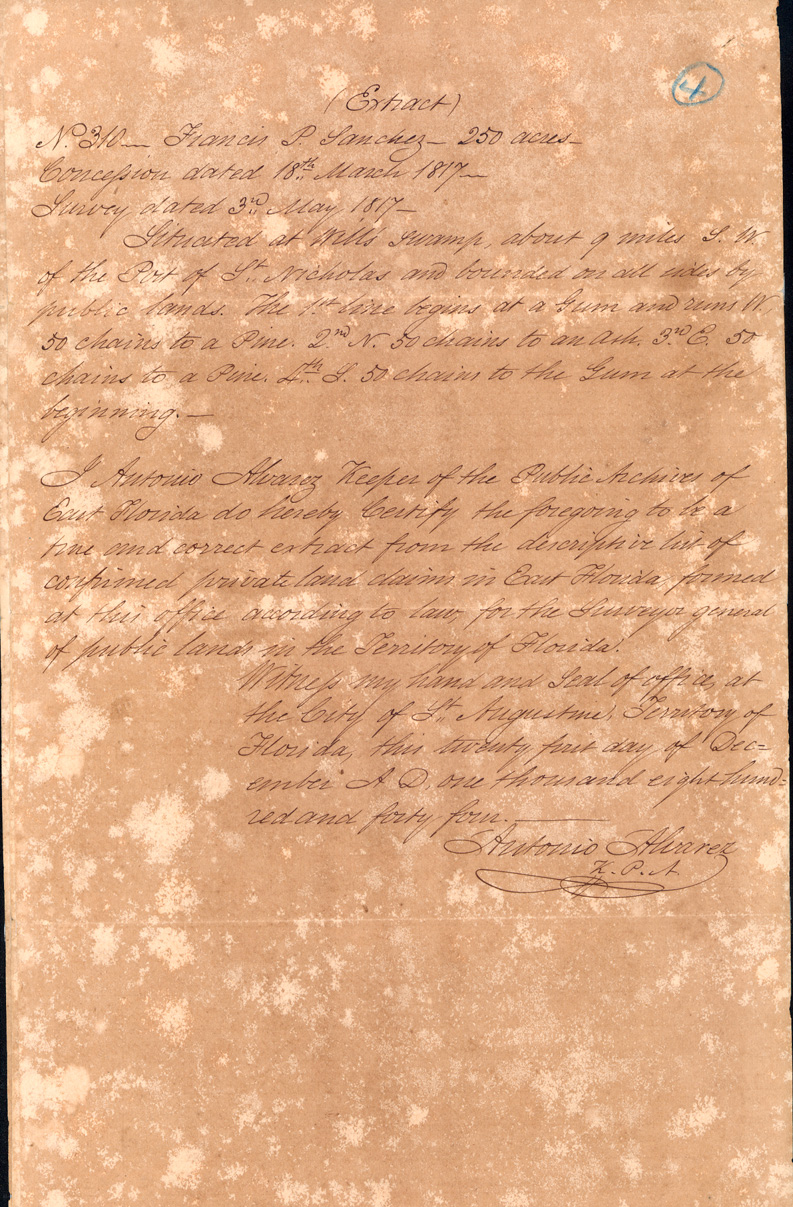 4
(Extract)
No. 310— Francis P. Sanchez— 250 acres—
Concession dated 18th. March 1817—
Survey dated 3rd. May 1817—
Situated at Wills Swamp, about 9 miles S. W.
of the Port of St. Nicholas and bounded on all sides by
public lands. The 1st. line begins at a Gum and runs W.
50 chains to a Pine. 2nd. N. 50 chains to an Ash. 3rd. E. 50
chains to a Pine. 4th. S. 50 chains to the Gum at the
beginning.—
I Antonio Alvarez Keeper of the Public Archives of
East Florida do hereby Certify the foregoing to be a
true and correct extract from the descriptive list of
confirmed private land claims in East Florida, formed
at this office according to law, for the Surveyor general
of public lands in the Territory of Florida.
Witness my hand and Seal of office, at
the City of St. Augustine, Territory of
Florida, this twenty first day of Dec=
ember A. D. one thousand eight hund=
red and forty four.—
Antonio Alvarez
K. P. A.